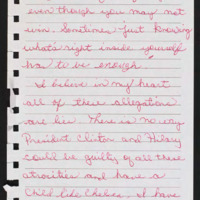 even though you may not
won. Sometimes just knowing
what's right inside yourself
has to be enough.
I believe in my heart
all of these allegations
are lies. There is no way
President Clinton and Hilary
could be guilty of all these
atrocities and have a
Child like Chelsea. I have